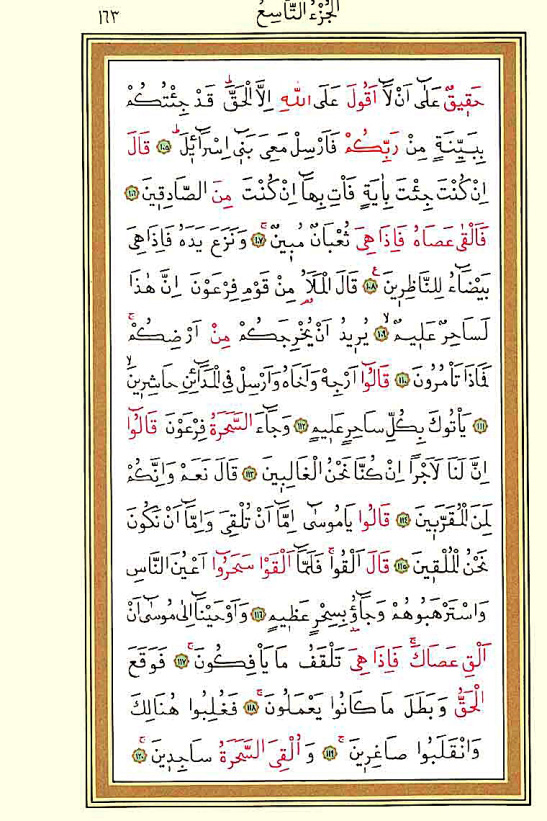 ١٦٣ اَلْجُزْءُ التَّاسِعُ
حَقٖيقٌ عَلٰٓى اَنْ لَٓا اَقُولَ عَلَى اللّٰهِ اِلَّا الْحَقَّؕ قَدْ جِئْتُكُمْ
بِبَيِّنَةٍ مِنْ رَبِّكُمْ فَاَرْسِلْ مَعِيَ بَنٖٓي اِسْرَٓائٖلَؕ ﴿١٠٥﴾ قَالَ
اِنْ كُنْتَ جِئْتَ بِاٰيَةٍ فَاْتِ بِهَٓا اِنْ كُنْتَ مِنَ الصَّادِقٖينَ ﴿١٠٦﴾
فَاَلْقٰى عَصَاهُ فَاِذَا هِيَ ثُعْبَانٌ مُبٖينٌۚ ﴿١٠٧﴾ وَنَزَعَ يَدَهُ فَاِذَا هِيَ
بَيْضَٓاءُ لِلنَّاظِرٖينَ۟ ﴿١٠٨﴾ قَالَ الْمَلَاُ مِنْ قَوْمِ فِرْعَوْنَ اِنَّ هٰذَا
لَسَاحِرٌ عَلٖيمٌۙ ﴿١٠٩﴾ يُرٖيدُ اَنْ يُخْرِجَكُمْ مِنْ اَرْضِكُمْۚ
فَمَاذَا تَاْمُرُونَ ﴿١١٠﴾ قَالُٓوا اَرْجِهْ وَاَخَاهُ وَاَرْسِلْ فِي الْمَدَٓائِنِ حَاشِرٖينَۙ
﴿١١١﴾ يَاْتُوكَ بِكُلِّ سَاحِرٍ عَلٖيمٍ ﴿١١٢﴾ وَجَٓاءَ السَّحَرَةُ فِرْعَوْنَ قَالُٓوا
اِنَّ لَنَا لَاَجْرًا اِنْ كُنَّا نَحْنُ الْغَالِبٖينَ ﴿١١٣﴾ قَالَ نَعَمْ وَاِنَّكُمْ
لَمِنَ الْمُقَرَّبٖينَ ﴿١١٤﴾ قَالُوا يَا مُوسٰٓى اِمَّٓا اَنْ تُلْقِيَ وَاِمَّٓا اَنْ نَكُونَ
نَحْنُ الْمُلْقٖينَ ﴿١١٥﴾ قَالَ اَلْقُواۚ فَلَمَّٓا اَلْقَوْا سَحَرُٓوا اَعْيُنَ النَّاسِ
وَاسْتَرْهَبُوهُمْ وَجَٓاؤُ۫ بِسِحْرٍ عَظٖيمٍ ﴿١١٦﴾ وَاَوْحَيْنَٓا اِلٰى مُوسٰٓى اَنْ
اَلْقِ عَصَاكَۚ فَاِذَا هِيَ تَلْقَفُ مَا يَاْفِكُونَۚ ﴿١١٧﴾ فَوَقَعَ
الْحَقُّ وَبَطَلَ مَا كَانُوا يَعْمَلُونَۚ ﴿١١٨﴾ فَغُلِبُوا هُنَالِكَ
وَانْقَلَبُوا صَاغِرٖينَۚ ﴿١١٩﴾ وَاُلْقِيَ السَّحَرَةُ سَاجِدٖينَۚ ﴿١٢٠﴾